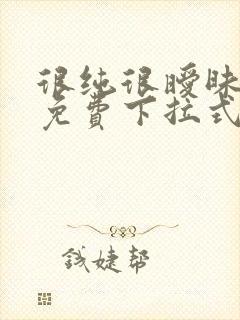 很纯很暧昧
免费下拉式
钱婕帮